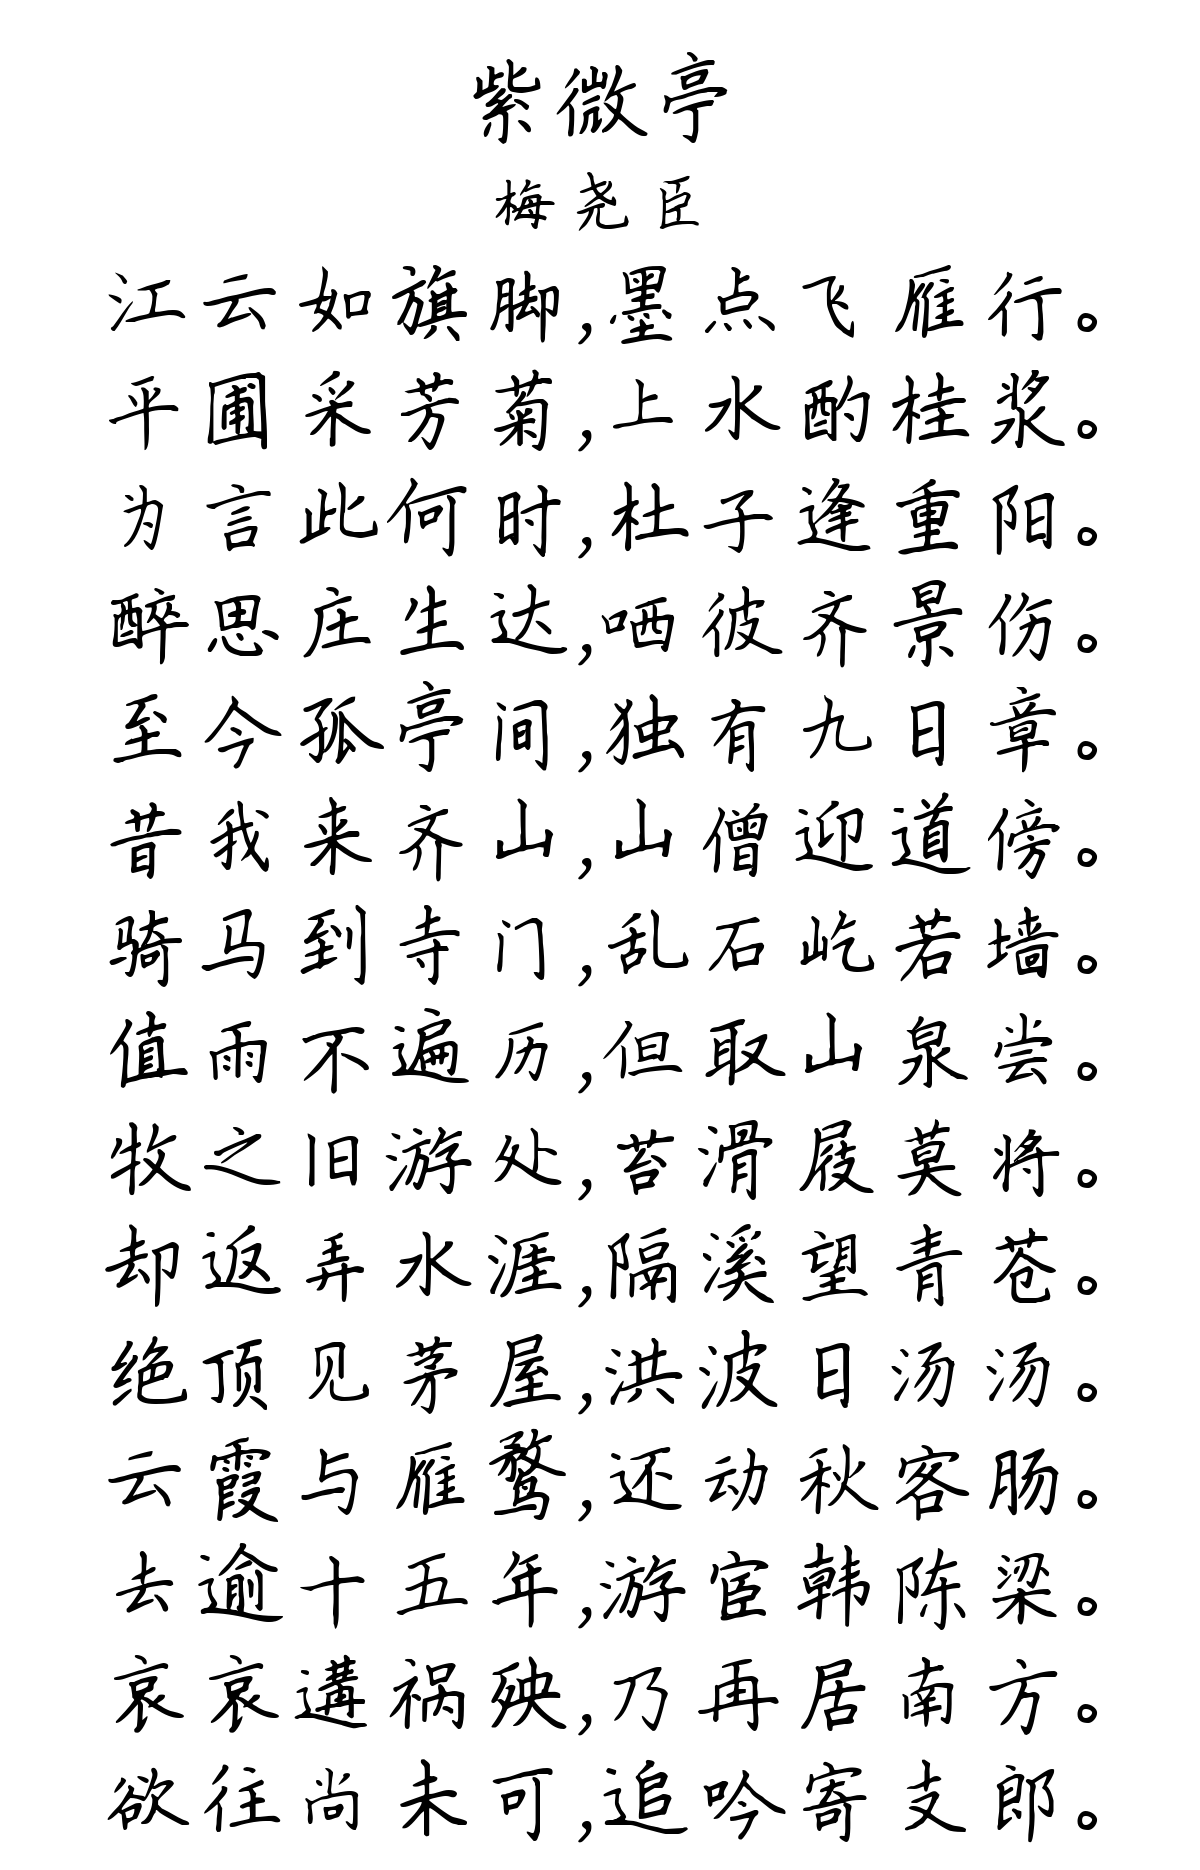 紫微亭
梅尧臣
江云如旗脚,墨点飞雁行。
平圃采芳菊,上水酌桂浆。
为言此何时,杜子逢重阳。
醉思庄生达,哂彼齐景伤。
至今孤亭间,独有九日章。
昔我来齐山,山僧迎道傍。
骑马到寺门,乱石屹若墙。
值雨不遍历,但取山泉尝。
牧之旧游处,苔滑屐莫将。
却返弄水涯,隔溪望青苍。
绝顶见茅屋,洪波日汤汤。
云霞与雁鹜,还动秋客肠。
去逾十五年,游宦韩陈梁。
哀哀遘祸殃,乃再居南方。
欲往尚未可,追吟寄支郎。